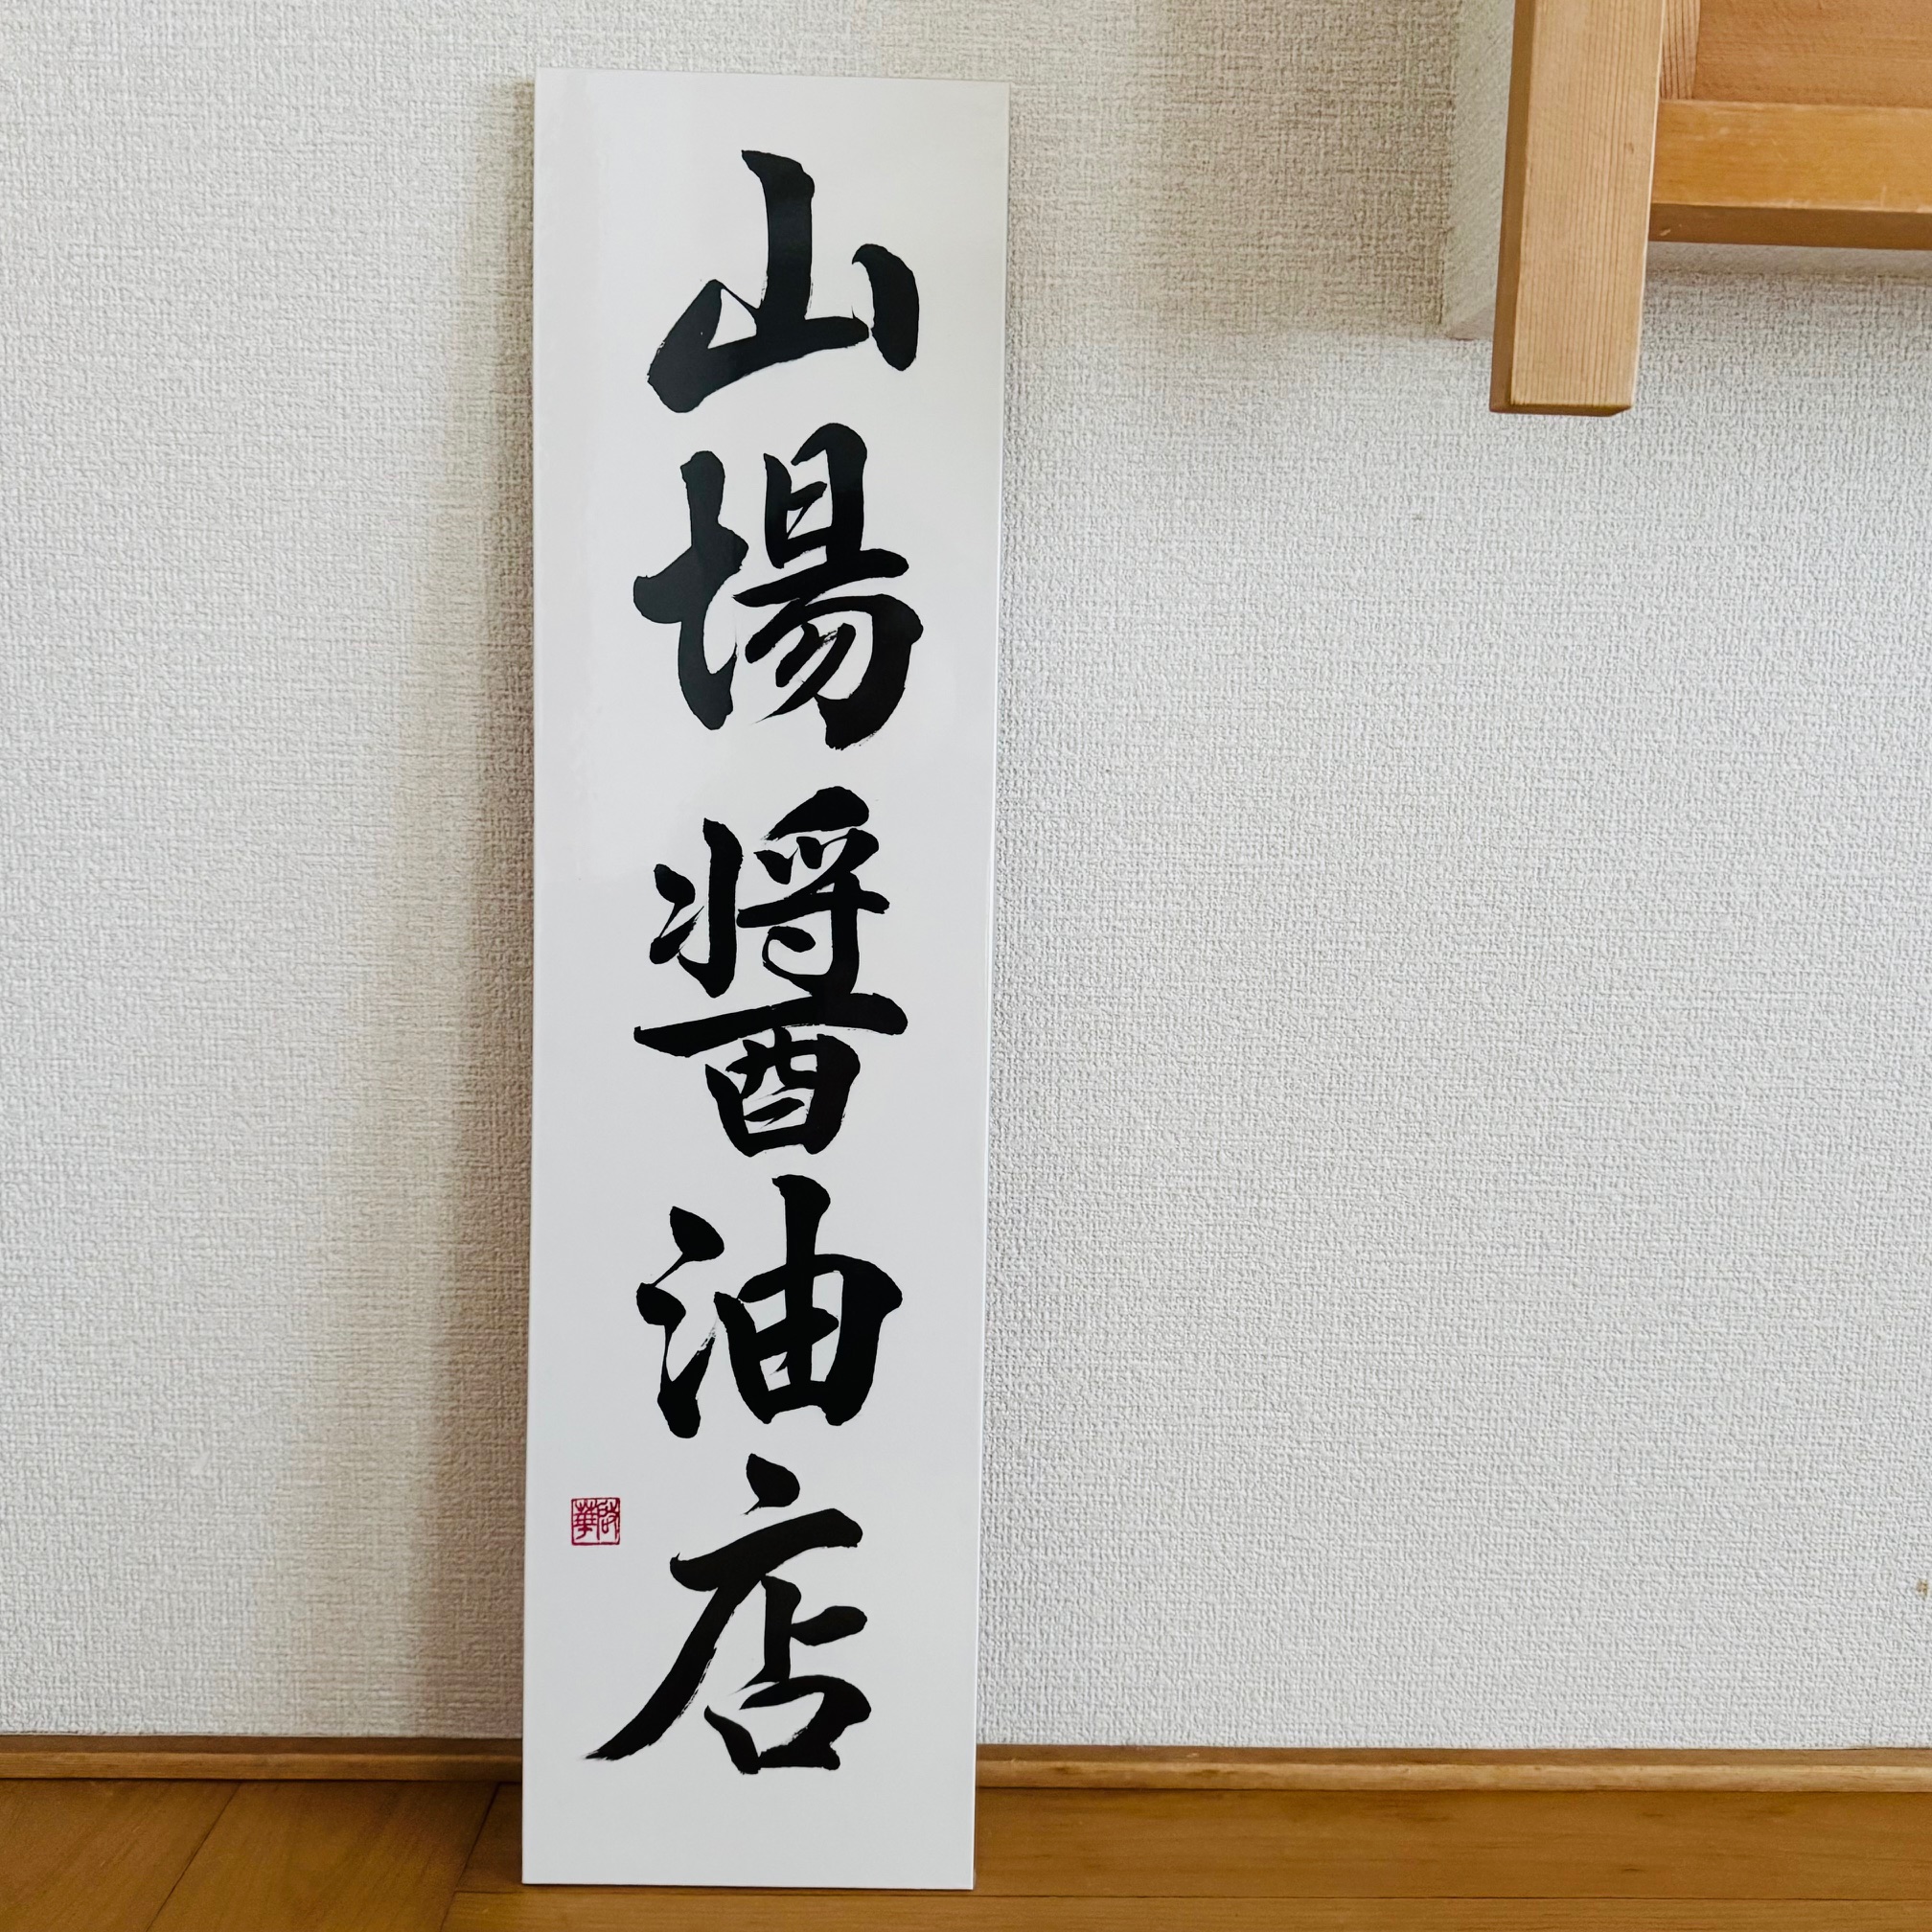 山場醤油店